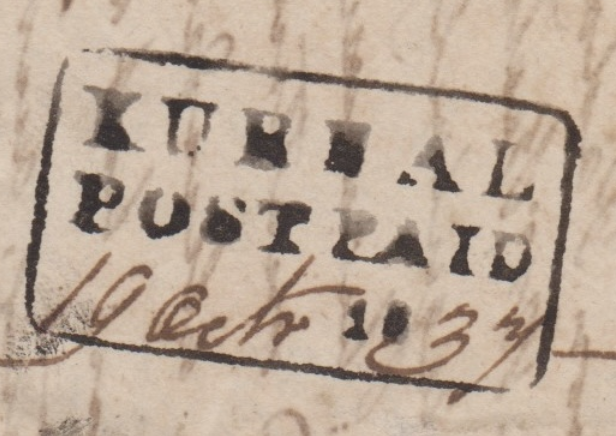 KURNAL
POSTPAID
19 Octr 1837